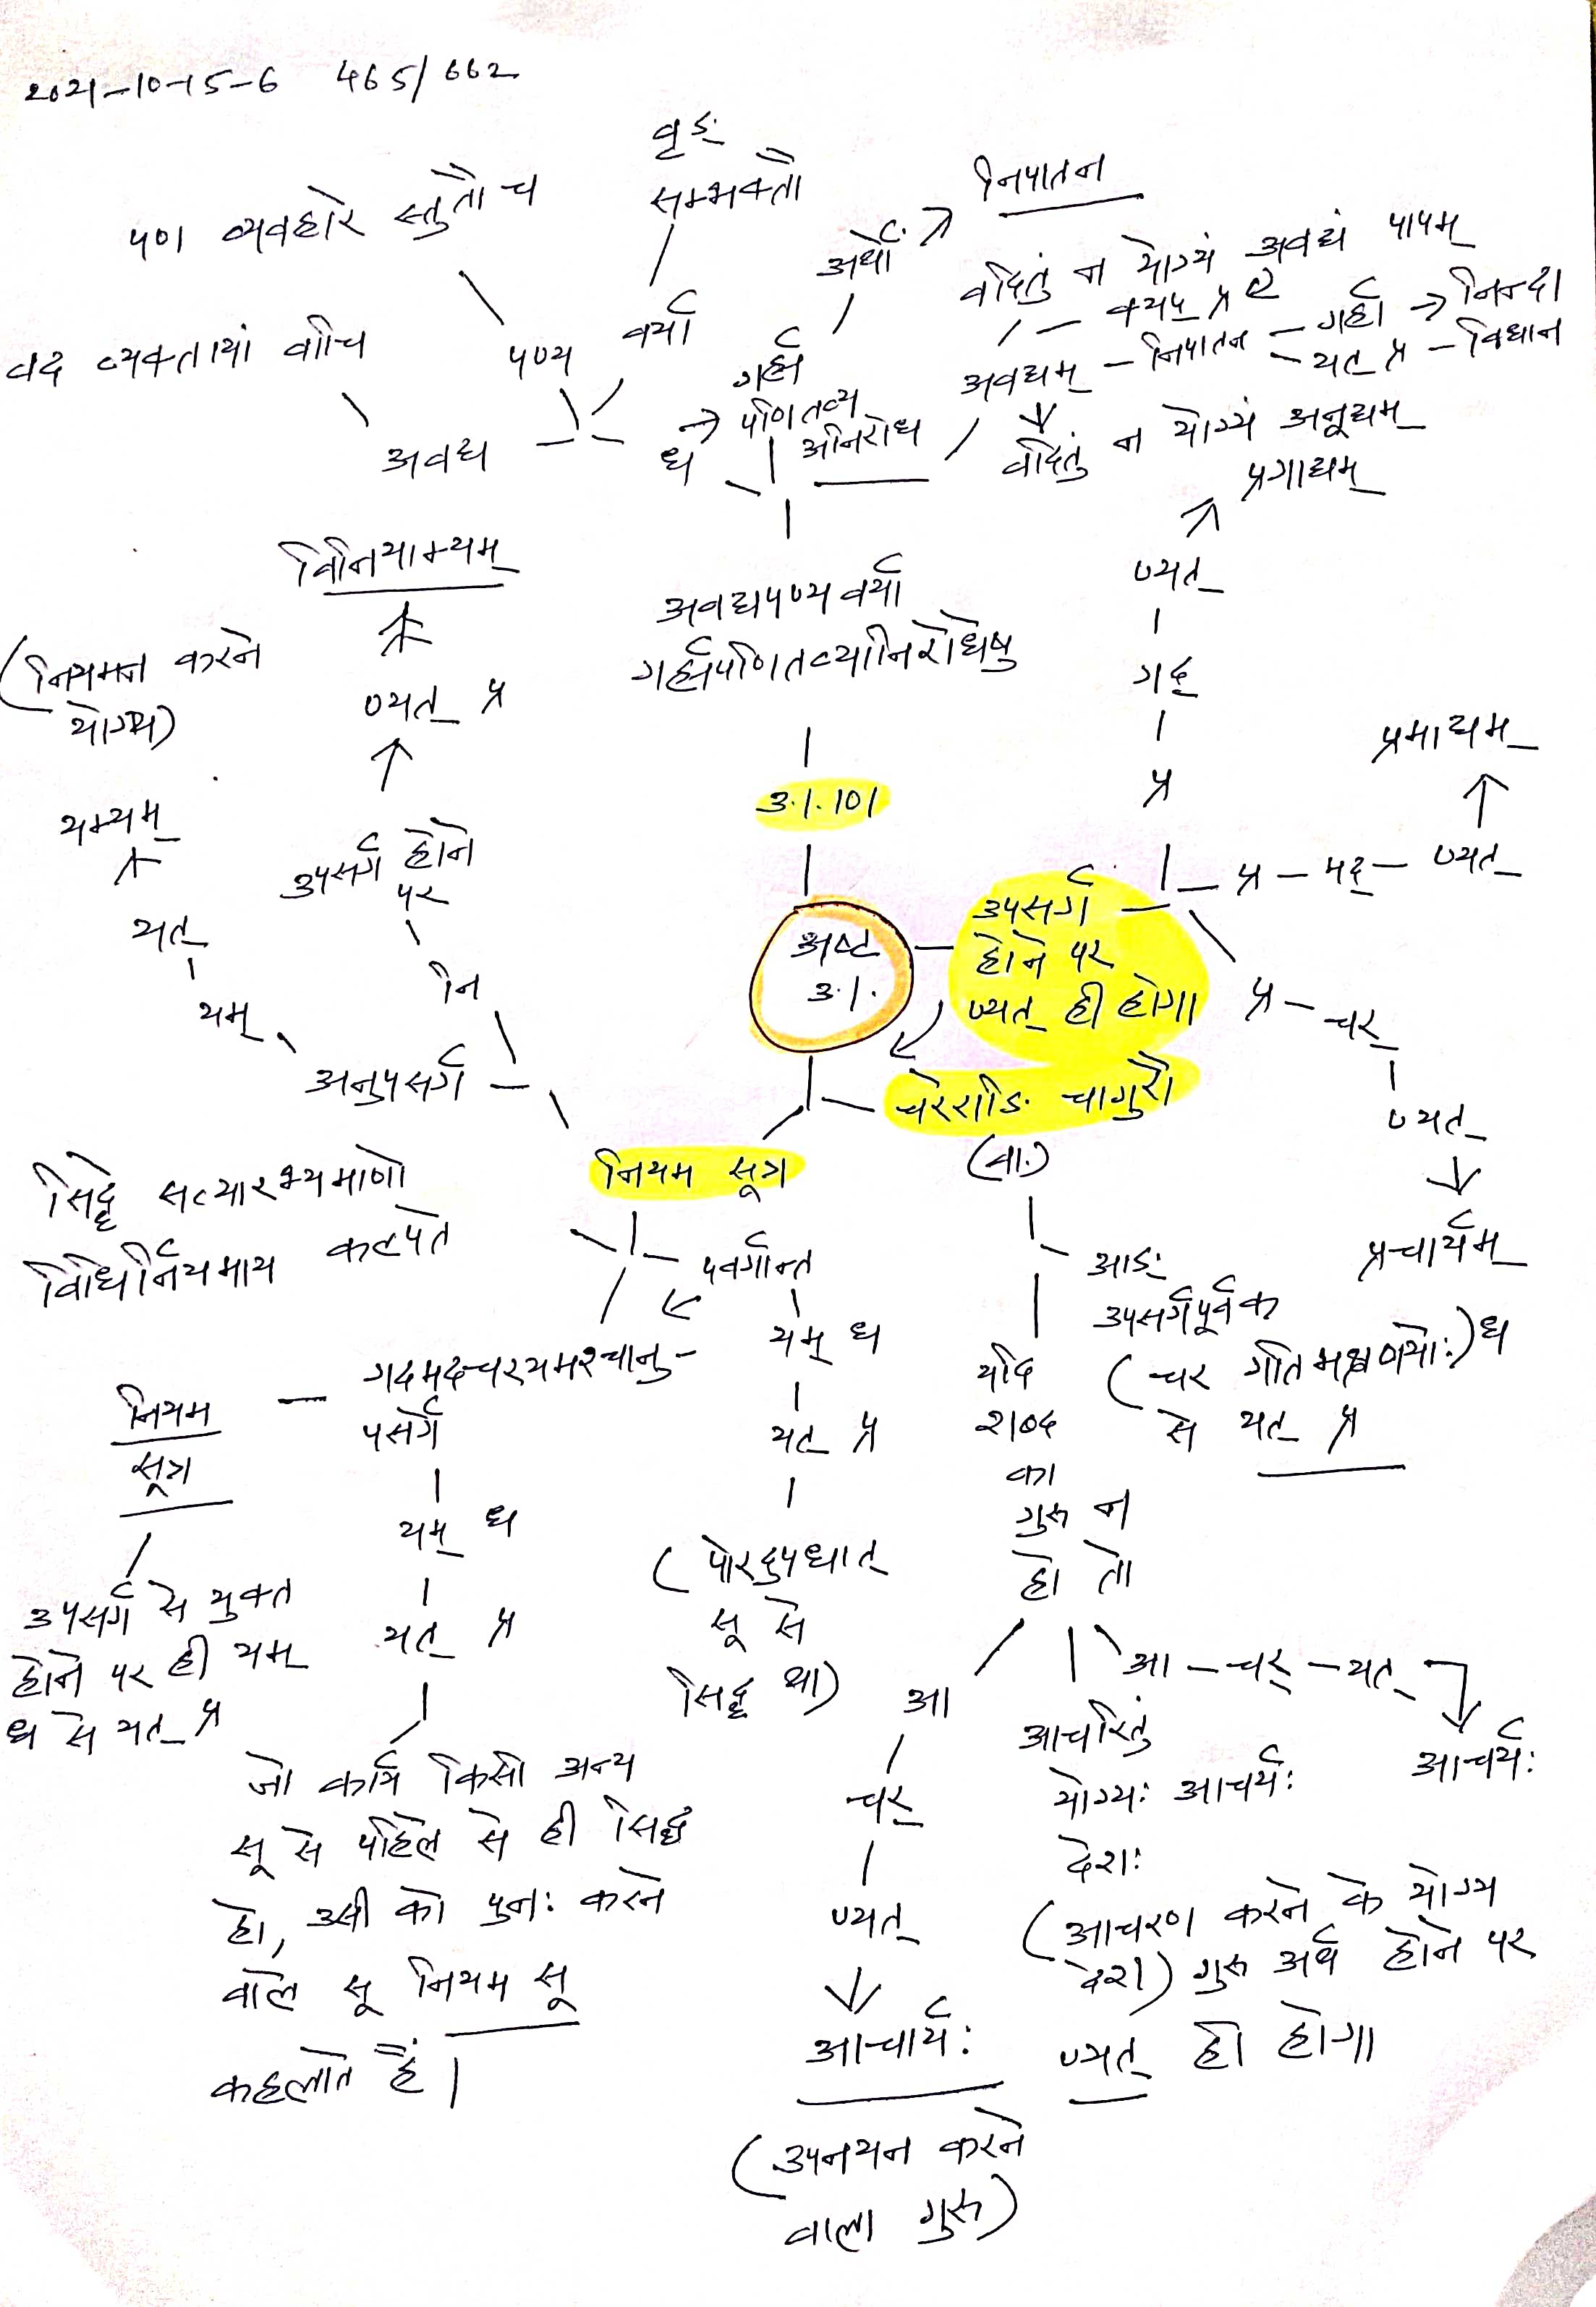 2021-10-15-6 465/662
वृङ्
सम्भक्तौ
पण व्यवहारे स्तुतौ च
वद व्यक्तायां वाचि
पण्य
वर्या
अवद्य
ध
अर्थों
निपातन
गर्ह्य
पणितव्य
अनिरोध
वदितुं न योग्यं अवद्यं पापम्
क्यप् प्र
अवद्यम् - निपातन - गर्हा → निन्दा
- यत् प्र - विधान
वदितुं न योग्यं अनूद्यम्
अवद्यपण्यवर्या
गर्ह्यपणितव्यानिरोधेषु
3.1.101
अष्ट
3.1.
विनियाम्यम्
(नियमन करने
योग्य)
ण्यत् प्र
उपसर्ग होने
पर
नि
यम्यम्
यत्
यम्
अनुपसर्ग
प्रगाद्यम्
ण्यत्
गद्
प्र
प्रमाद्यम्
प्र - मद् - ण्यत्
उपसर्ग
होने पर
ण्यत् ही होगा
प्र - चर्
ण्यत्
प्रचार्यम्
चरेराङि चागुरौ
(वा.)
नियम सूत्र
सिद्धे सत्यारभ्यमाणो
विधिर्नियमाय कल्पते
पवर्गान्त
यम् ध
यत् प्र
(पोरदुपधात्
सू से
सिद्ध था)
गदमदचरयमश्चानु-
पसर्गे
नियम
सूत्र
यम् ध
यत् प्र
उपसर्ग से युक्त
होने पर ही यम्
ध से यत् प्र
जो कार्य किसी अन्य
सू से पहिले से ही सिद्ध
हो, उसी को पुनः करने
वाले सू नियम सू
कहलाते हैं।
आङ्
उपसर्गपूर्वक
(चर गतिभक्षणयोः) ध
से यत् प्र
यदि
शब्द
का
गुरु न
हो तो
आ - चर् - यत्
आचर्यः
आचरितुं
योग्यः आचर्यः
देशः
(आचरण करने के योग्य
देश) गुरु अर्थ होने पर
ण्यत् ही होगा
आ
चर्
ण्यत्
आचार्यः
(उपनयन करने
वाला गुरु)